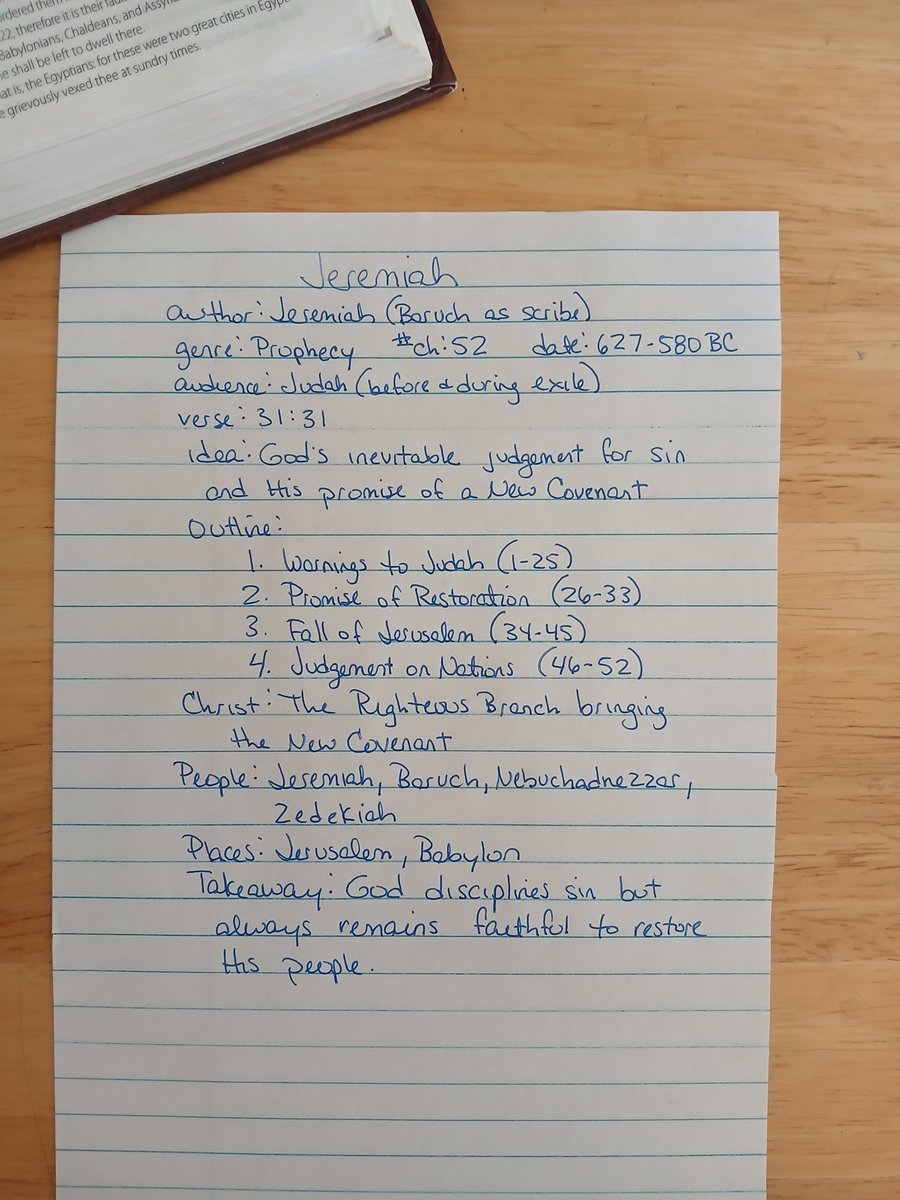 ordered them
22, therefore it is their
Babylonians, Chaldeans, and
shall be left to dwell there.
that is, the Egyptians: for these were two great cities in
grievously vexed thee at sundry times.
Jeremiah
author: Jeremiah (Baruch as scribe)
genre: Prophecy #ch: 52 date: 627-580 BC
audience: Judah (before & during exile)
verse: 31:31
idea: God's inevitable judgement for sin
and His promise of a New Covenant
Outline:
1. Warnings to Judah (1-25)
2. Promise of Restoration (26-33)
3. Fall of Jerusalem (34-45)
4. Judgement on Nations (46-52)
Christ: The Righteous Branch bringing
the New Covenant
People: Jeremiah, Baruch, Nebuchadnezzar,
Zedekiah
Places: Jerusalem, Babylon
Takeaway: God disciplines sin but
always remains faithful to restore
His people.